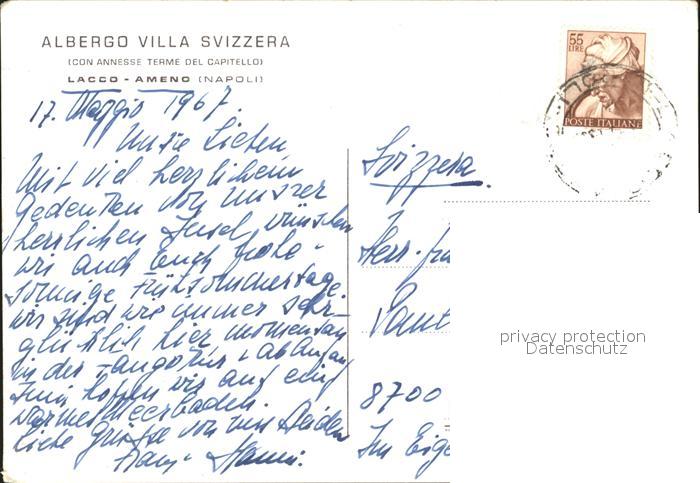 ALBERGO VILLA SVIZZERA
(CON ANNESSE TERME DEL CAPITELLO)
LACCO - AMENO (NAPOLI)
17. Maggio 1967.
Unsre Lieben
Mit viel herzlichem
Gedenken von unsrer
herrlichen Insel wünschen
wir auch Euch frohe
sonnige Frühsommertage.
Wir sind wie immer sehr
glücklich hier momentan
in der Fangokur u. ab Anfang
Juni hoffen wir auf ein
warmes Meerbaden.
Liebe Grüsse von uns Beiden
Hanni.
55
LIRE
POSTE ITALIANE
Svizzera.
Herr
8700
Im
privacy protection
Datenschutz